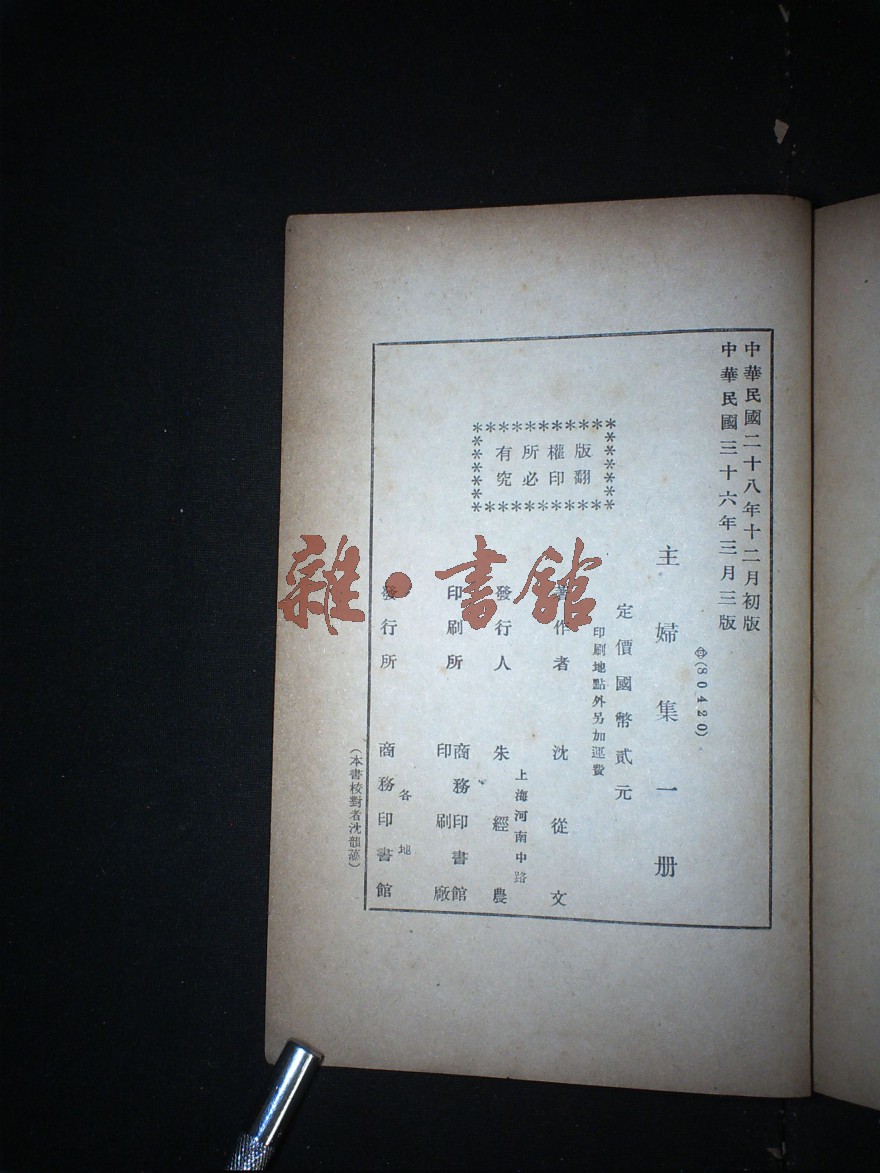 中華民國二十八年十二月初版
中華民國三十六年三月三版
㊥(80420)
主婦集一册
定價國幣貳元
印刷地點外另加運費
版權所有
翻印必究
著作者 沈從文
上海河南中路
發行人 朱經農
印刷所 商務印書館
印刷廠
各地
發行所 商務印書館
(本書校對者沈韻
雜·書館